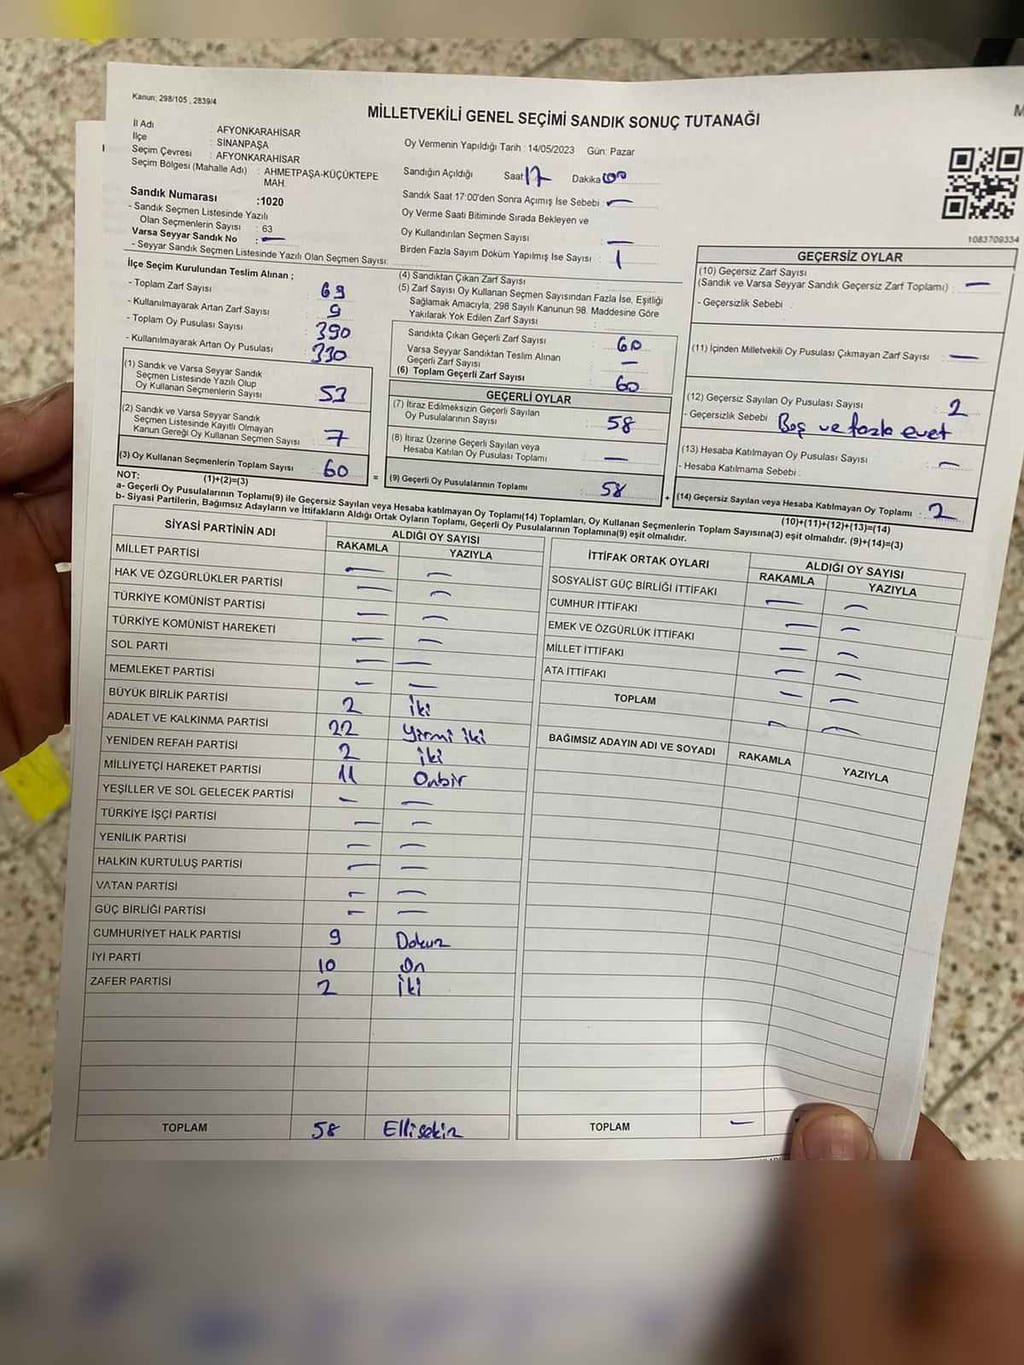 Kanun; 298/105 , 2839/4
MİLLETVEKİLİ GENEL SEÇİMİ SANDIK SONUÇ TUTANAĞI
İl Adı : AFYONKARAHİSAR
İlçe : SİNANPAŞA
Seçim Çevresi : AFYONKARAHİSAR
Seçim Bölgesi (Mahalle Adı) : AHMETPAŞA-KÜÇÜKTEPE
MAH.
Sandık Numarası :1020
- Sandık Seçmen Listesinde Yazılı
Olan Seçmenlerin Sayısı : 63
Varsa Seyyar Sandık No : —
- Seyyar Sandık Seçmen Listesinde Yazılı Olan Seçmen Sayısı:
Oy Vermenin Yapıldığı Tarih : 14/05/2023 Gün: Pazar
Sandığın Açıldığı Saat 17 Dakika 00
Sandık Saat 17:00'den Sonra Açımış İse Sebebi —
Oy Verme Saati Bitiminde Sırada Bekleyen ve
Oy Kullandırılan Seçmen Sayısı —
Birden Fazla Sayım Döküm Yapılmış İse Sayısı : 1
1083709334
İlçe Seçim Kurulundan Teslim Alınan ;
- Toplam Zarf Sayısı 69
- Kullanılmayarak Artan Zarf Sayısı 9
- Toplam Oy Pusulası Sayısı 390
- Kullanılmayarak Artan Oy Pusulası 330
(1) Sandık ve Varsa Seyyar Sandık
Seçmen Listesinde Yazılı Olup
Oy Kullanan Seçmenlerin Sayısı 53
(2) Sandık ve Varsa Seyyar Sandık
Seçmen Listesinde Kayıtlı Olmayan
Kanun Gereği Oy Kullanan Seçmen Sayısı 7
(3) Oy Kullanan Seçmenlerin Toplam Sayısı 60
(1)+(2)=(3)
(4) Sandıktan Çıkan Zarf Sayısı :
(5) Zarf Sayısı Oy Kullanan Seçmen Sayısından Fazla İse, Eşitliği
Sağlamak Amacıyla; 298 Sayılı Kanunun 98. Maddesine Göre
Yakılarak Yok Edilen Zarf Sayısı
Sandıkta Çıkan Geçerli Zarf Sayısı 60
Varsa Seyyar Sandıktan Teslim Alınan
Geçerli Zarf Sayısı —
(6) Toplam Geçerli Zarf Sayısı 60
GEÇERLİ OYLAR
(7) İtiraz Edilmeksizin Geçerli Sayılan
Oy Pusulalarının Sayısı 58
(8) İtiraz Üzerine Geçerli Sayılan veya
Hesaba Katılan Oy Pusulası Toplamı —
= (9) Geçerli Oy Pusulalarının Toplamı 58
GEÇERSİZ OYLAR
(10) Geçersiz Zarf Sayısı
(Sandık ve Varsa Seyyar Sandık Geçersiz Zarf Toplamı) : —
- Geçersizlik Sebebi :
(11) İçinden Milletvekili Oy Pusulası Çıkmayan Zarf Sayısı —
(12) Geçersiz Sayılan Oy Pusulası Sayısı 2
- Geçersizlik Sebebi Boş ve fazla evet
(13) Hesaba Katılmayan Oy Pusulası Sayısı —
- Hesaba Katılmama Sebebi :
+ (14) Geçersiz Sayılan veya Hesaba Katılmayan Oy Toplamı : 2
(10)+(11)+(12)+(13)=(14)
NOT:
a- Geçerli Oy Pusulalarının Toplamı(9) ile Geçersiz Sayılan veya Hesaba katılmayan Oy Toplamı(14) Toplamları, Oy Kullanan Seçmenlerin Toplam Sayısına(3) eşit olmalıdır. (9)+(14)=(3)
b- Siyasi Partilerin, Bağımsız Adayların ve İttifakların Aldığı Ortak Oyların Toplamı, Geçerli Oy Pusulalarının Toplamına(9) eşit olmalıdır.
SİYASİ PARTİNİN ADI ALDIĞI OY SAYISI
RAKAMLA YAZIYLA
MİLLET PARTİSİ — —
HAK VE ÖZGÜRLÜKLER PARTİSİ — —
TÜRKİYE KOMÜNİST PARTİSİ — —
TÜRKİYE KOMÜNİST HAREKETİ — —
SOL PARTİ — —
MEMLEKET PARTİSİ — —
BÜYÜK BİRLİK PARTİSİ 2 iki
ADALET VE KALKINMA PARTİSİ 22 Yirmi iki
YENİDEN REFAH PARTİSİ 2 iki
MİLLİYETÇİ HAREKET PARTİSİ 11 Onbir
YEŞİLLER VE SOL GELECEK PARTİSİ — —
TÜRKİYE İŞÇİ PARTİSİ — —
YENİLİK PARTİSİ — —
HALKIN KURTULUŞ PARTİSİ — —
VATAN PARTİSİ — —
GÜÇ BİRLİĞİ PARTİSİ — —
CUMHURİYET HALK PARTİSİ 9 Dokuz
İYİ PARTİ 10 On
ZAFER PARTİSİ 2 İki
TOPLAM 58 Ellisekiz
İTTİFAK ORTAK OYLARI ALDIĞI OY SAYISI
RAKAMLA YAZIYLA
SOSYALİST GÜÇ BİRLİĞİ İTTİFAKI — —
CUMHUR İTTİFAKI — —
EMEK VE ÖZGÜRLÜK İTTİFAKI — —
MİLLET İTTİFAKI — —
ATA İTTİFAKI — —
TOPLAM — —
BAĞIMSIZ ADAYIN ADI VE SOYADI RAKAMLA YAZIYLA
TOPLAM —